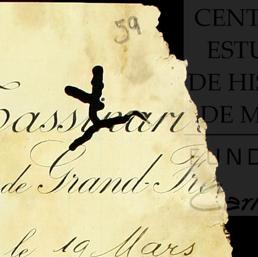 59
de Grand-Pré
le 19 Mars
CENT
ESTU
DE HIS
DE M
FUND